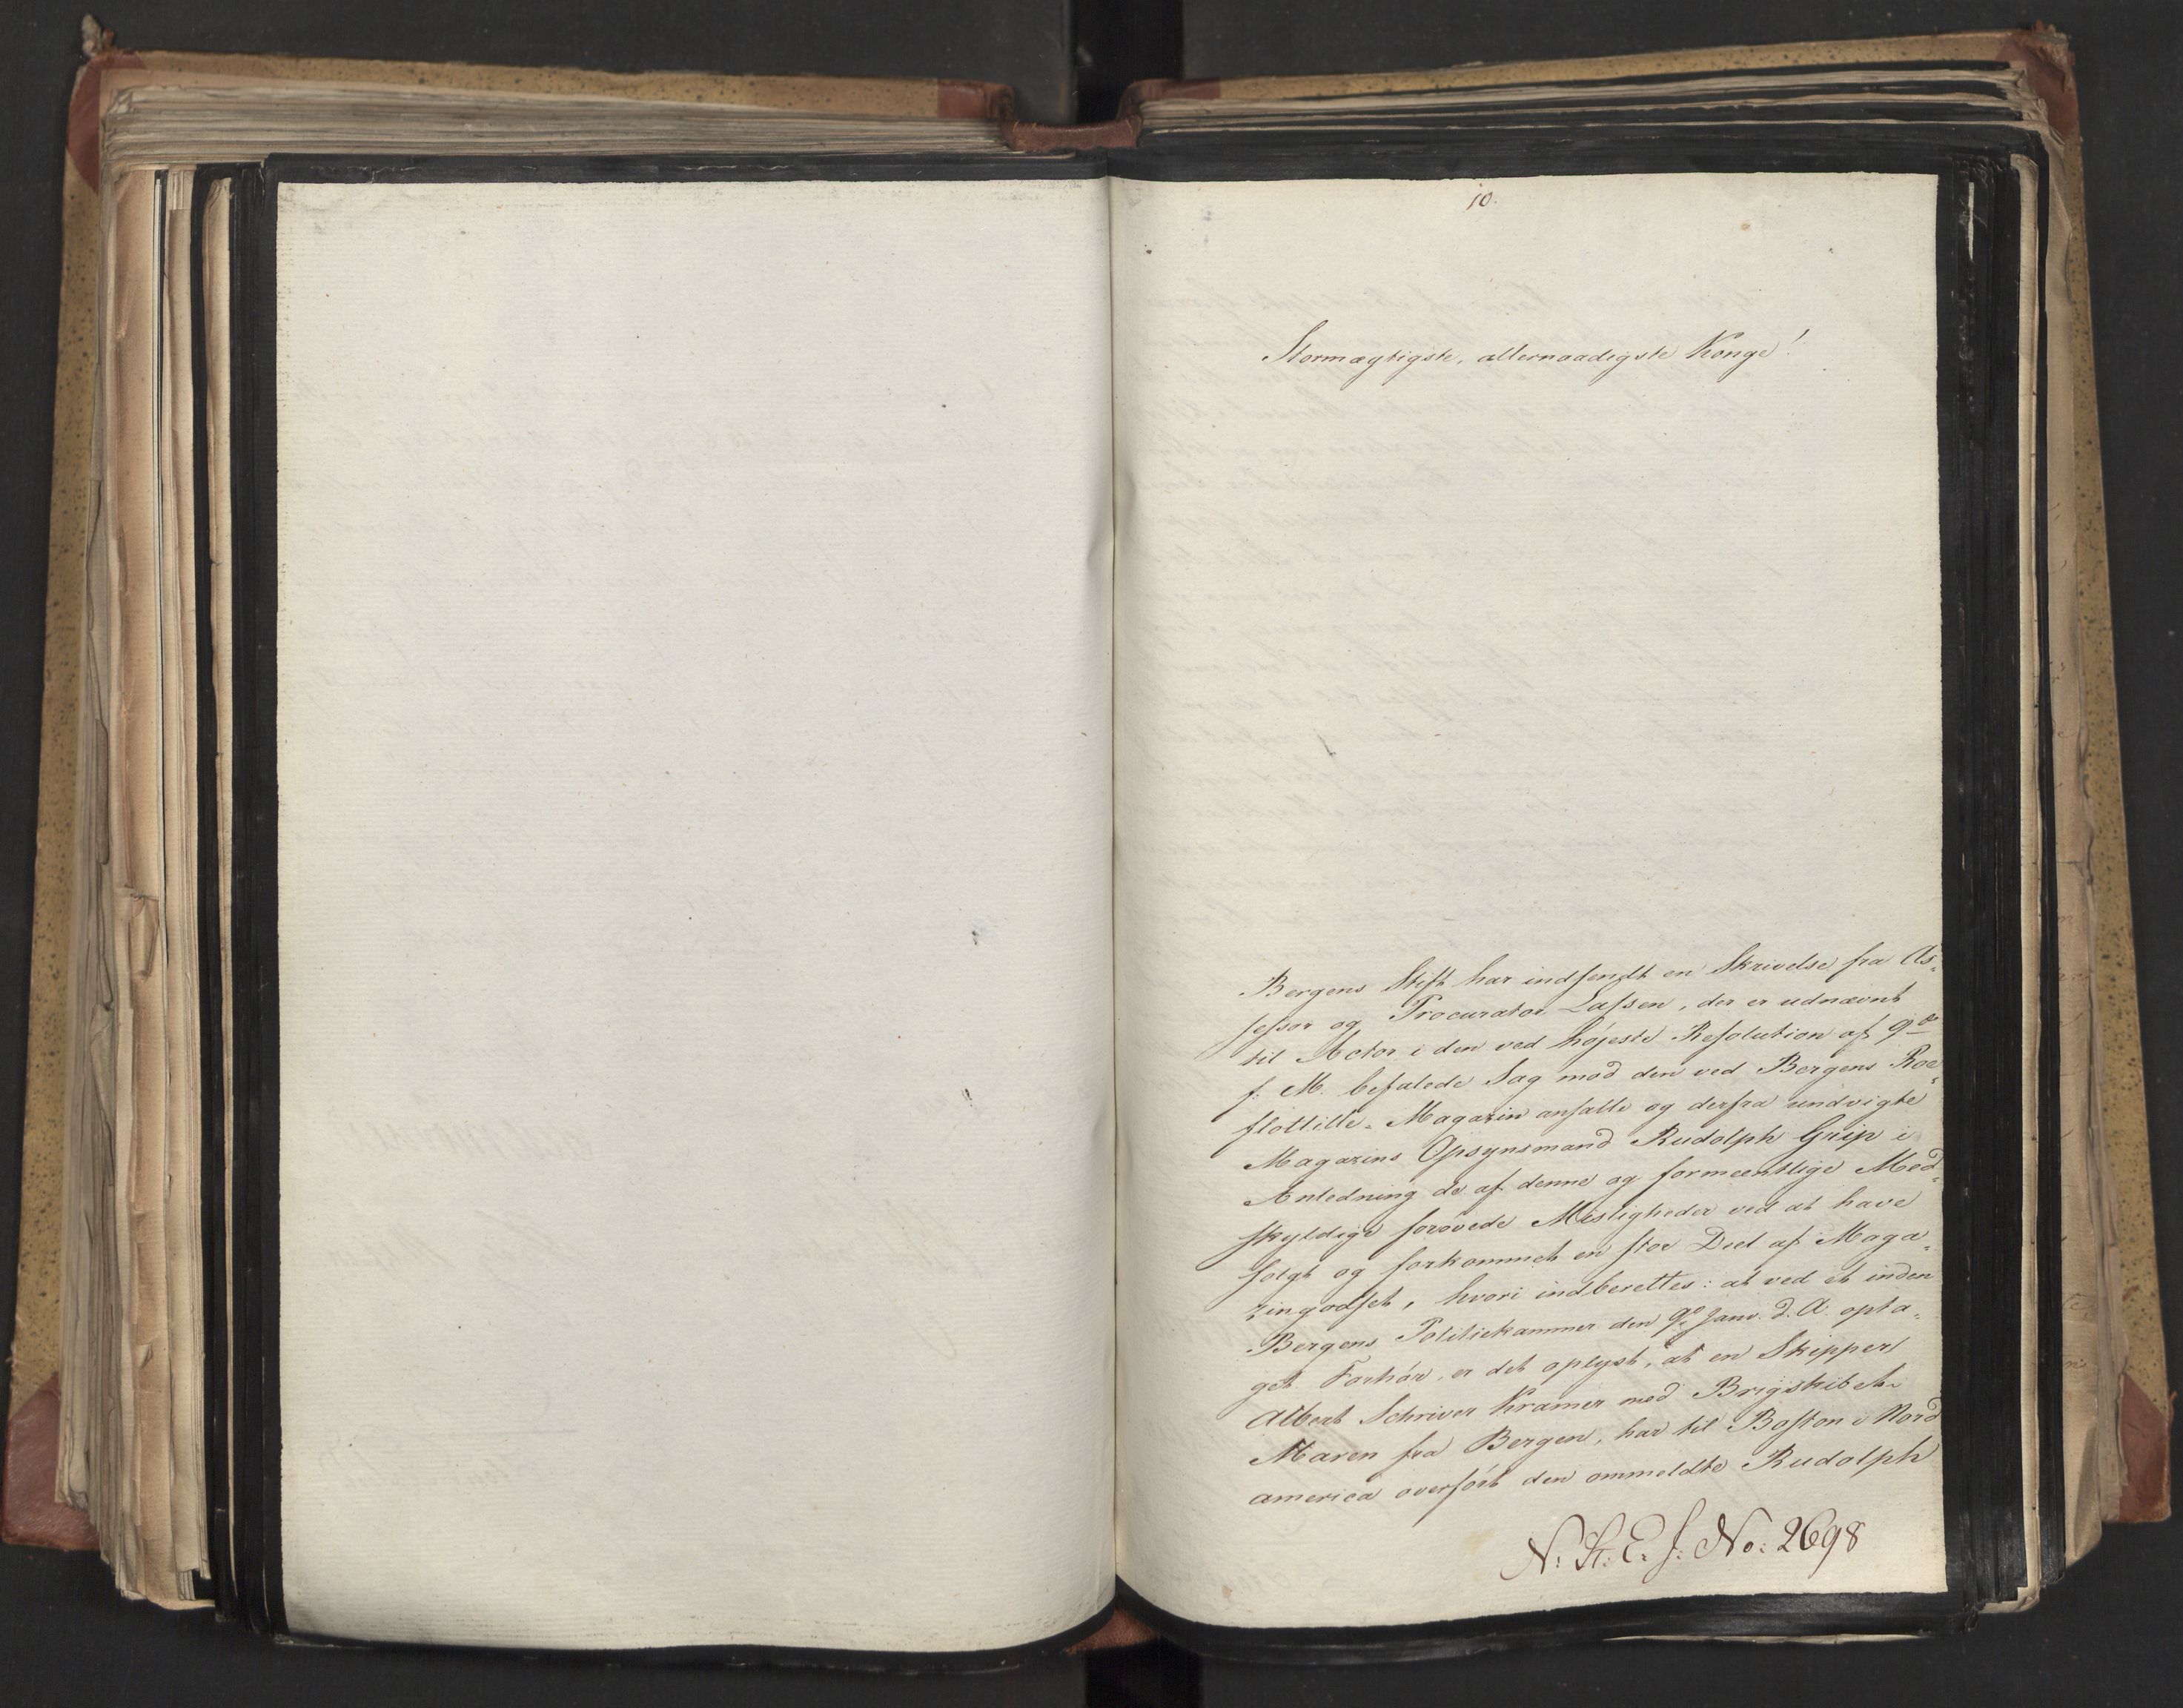 10.
Stormægtigste, allernaadigste Konge!
Bergens Stift har indsendt en Skrivelse fra As-
sessor og Procurator Lassen, der er udnævnt
til Actor i den ved højeste Resolution af 9de
f: M. befalede Sag mod den ved Bergens Roe-
flottille-Magazin ansatte og derfra undvigte
Magazins Opsynsmand Rudolph Grip i
Anledning de af denne og formeentlige Med-
skyldige forøvede Misligheder ved at have
solgt og forkommet en stor Deel af Maga-
zingodset, hvori indberettes: at ved et inden
Bergens Politiekammer den 9de Janv. d. A. opta-
get Forhör, er det oplyst, at en Skipper
Albert Schriver Kramer med Brigskibet
Maren fra Bergen, har til Boston i Nord
america overfört den ommeldte Rudolph
N: St: E: J: No: 2698